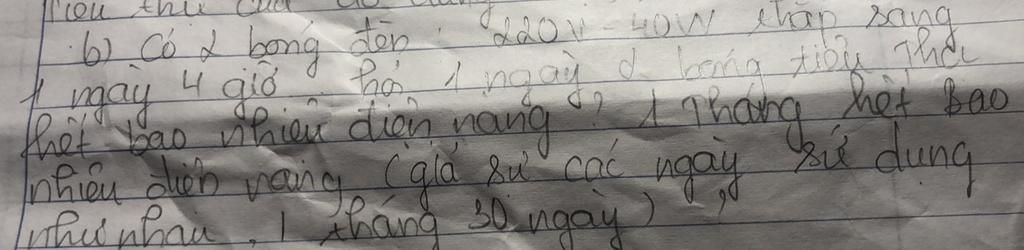 tiêu thụ của
b) Có 2 bóng đèn 220V - 40W thắp sáng
1 ngày 4 giờ hỏi 1 ngày 2 bóng tiêu thụ
hết bao nhiêu điện năng? 1 Tháng hết Bao
nhiêu điện năng (giả sử các ngày sử dụng
như nhau, 1 tháng 30 ngày)